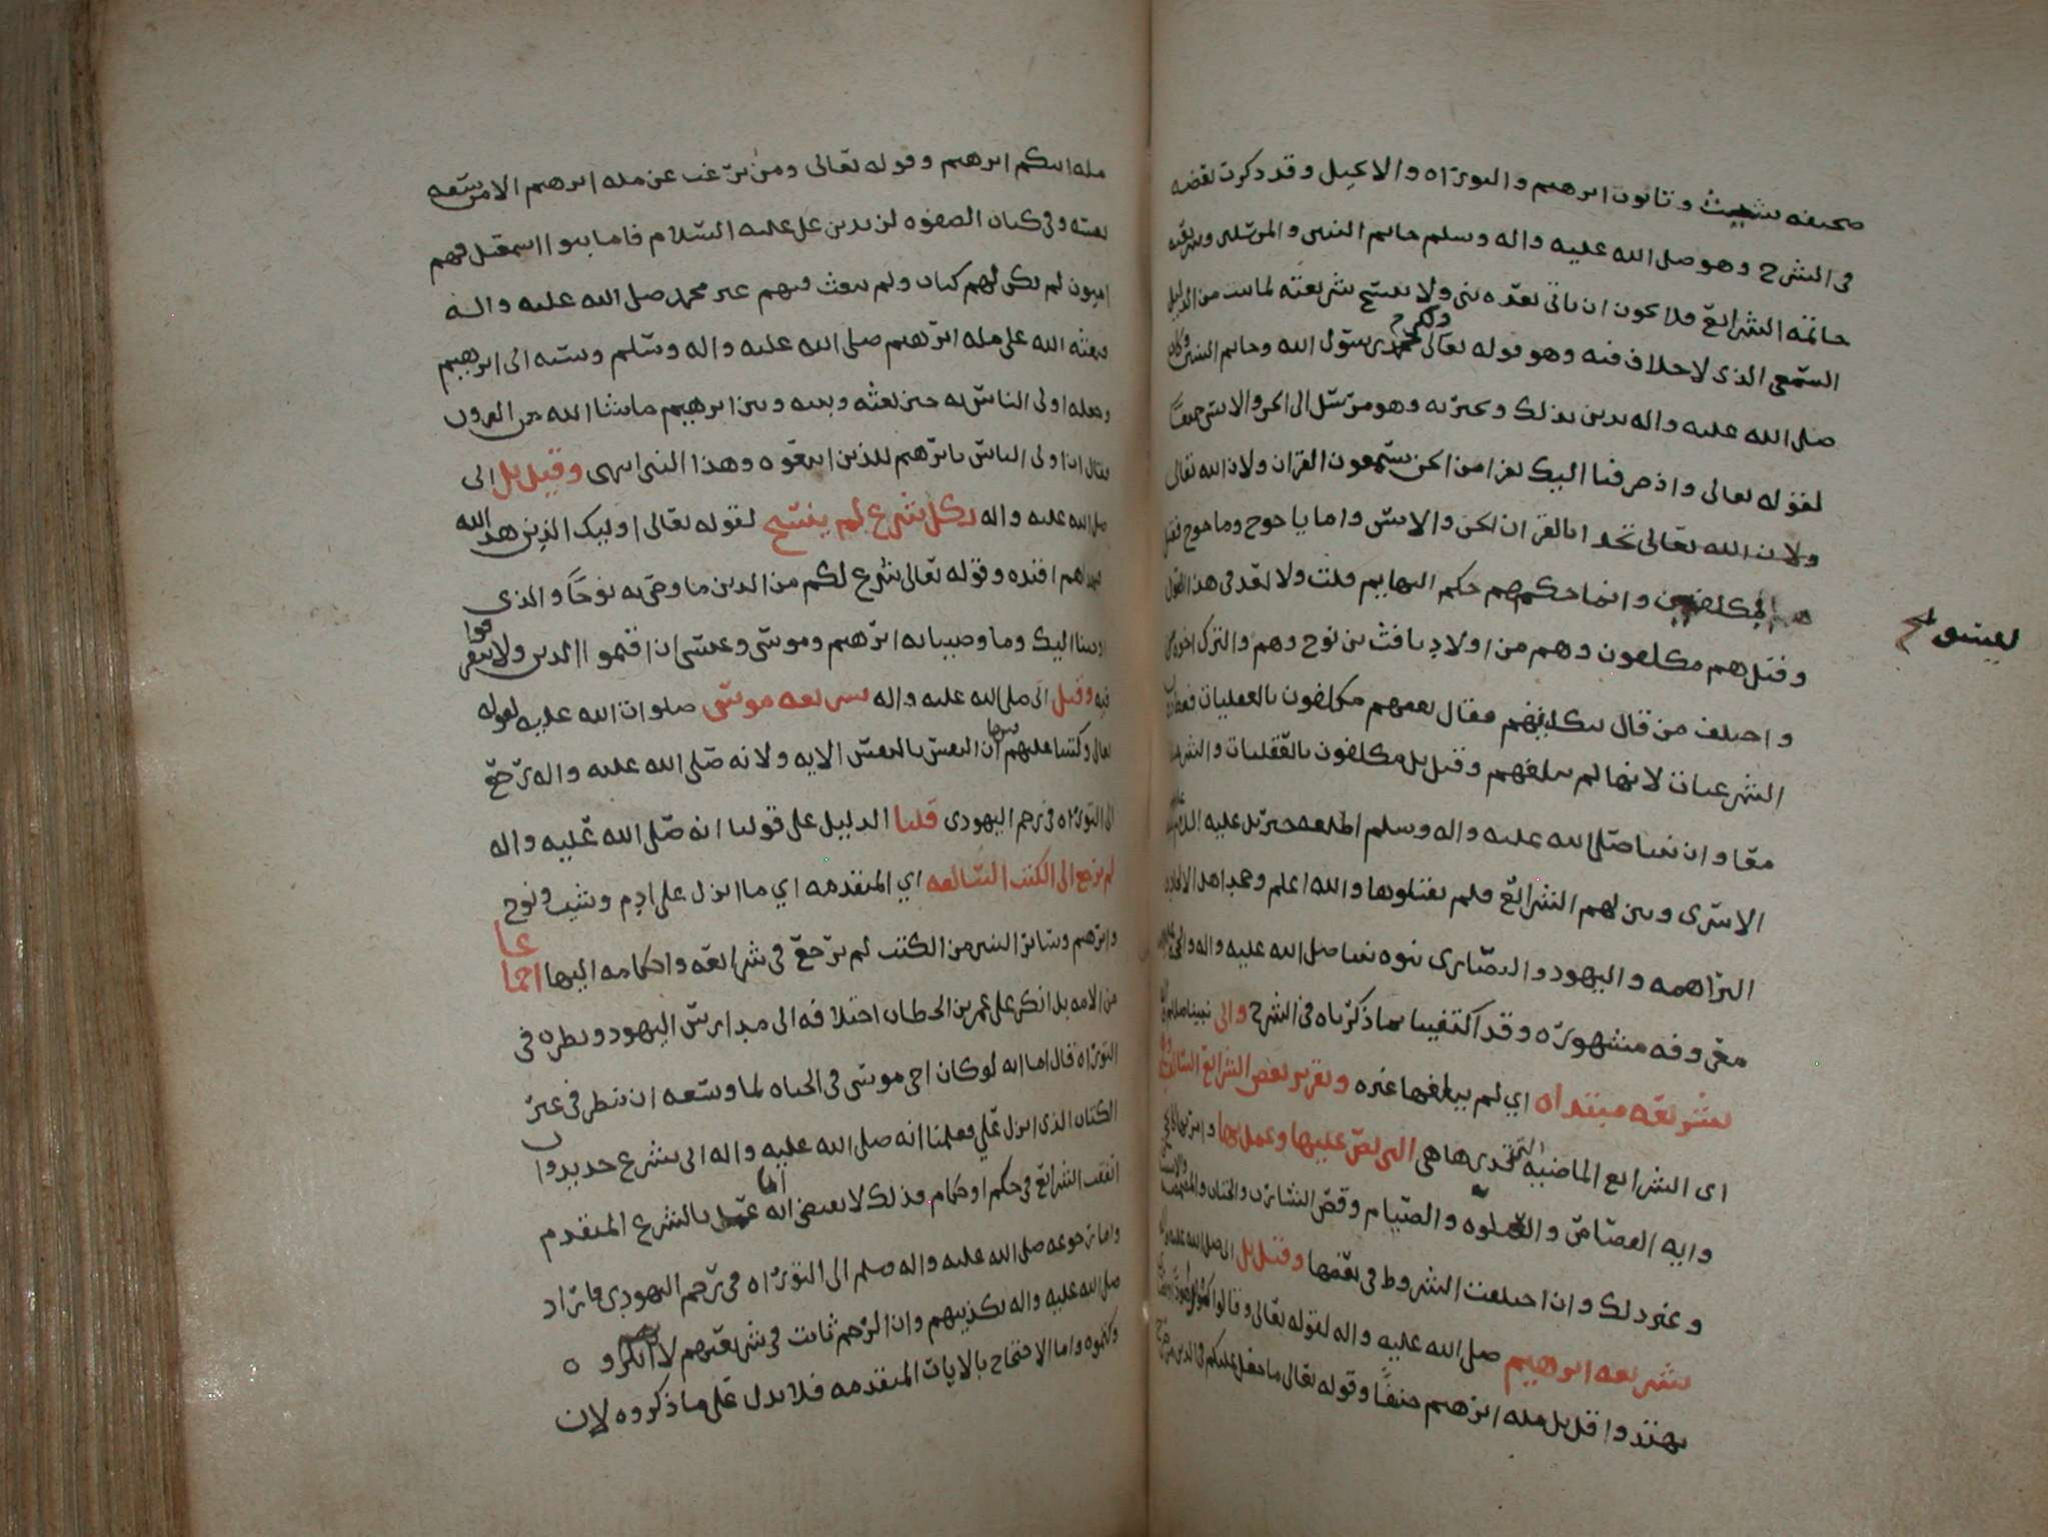 صحيفه شيث وقانون ابرهيم والتوراه والانجيل وقد ذكرت بعضه
في الشرح وهو صلى الله عليه واله وسلم خاتم النبين والمرسلين وشريعته
خاتمة الشرايع فلا يجوز ان ياتي بعده نبي ولا ينسخ شريعته لما ثبت من الدليل
السمعي الذي لا خلاف فيه وهو قوله تعالى ولكن رسول الله وخاتم النبين وكان
صلى الله عليه واله يدين بذلك ويخبر به وهو مرسل الى الجن والانس جميعا
لقوله تعالى واذ صرفنا اليك نفرا من الجن يستمعون القران ولان الله تعالى
ولان الله تعالى تحدا بالقران الجن والانس واما ياجوج وماجوج فقيل
مكلفين وانما حكمهم حكم البهايم قلت ولا بعد في هذا القول
ليسو
وقيل هم مكلفون وهم من اولاد يافث بن نوح وهم والترك اخوه
واختلف من قال بتكليفهم فقال بعضهم مكلفون بالعقليات فقط
الشرعيات لانها لم تبلغهم وقيل بل مكلفون بالعقليات والشرعيات
معا وان نبينا صلى الله عليه واله وسلم اطلعه جبريل عليه
الاسرى وبين لهم الشرايع فلم يقبلوها والله اعلم وجحد اهل الالحاد
البراهمه واليهود والنصارى نبوه نبينا صلى الله عليه واله
معروفه مشهوره وقد اكتفينا بما ذكرناه في الشرح واتى نبينا
بشريعه مبتداه اي لم يبلغها غيره وتقرير بعض الشرايع
اى الشرايع الماضيه التى هي التي نص عليها وعمل بها
وايه القصاص والصلوه والصيام وقص الشارب والختان
وغير ذلك وان اختلفت الشروط في بعضها وقيل بل اتى صلى الله عليه
بشريعه ابرهيم صلى الله عليه واله لقوله تعالى وقالوا كونوا هودا
تهتدوا قل بل مله ابرهيم حنيفا وقوله تعالى ما جعل عليكم في الدين من حرج
مله ابيكم ابرهيم وقوله تعالى ومن يرغب عن مله ابرهيم الا من سفه
نفسه وفي كتاب الصفوه لزيد بن علي عليه السلام فاما بنوا اسمعيل فهم
اميون لم يكن لهم كتاب ولم يبعث فيهم غير محمد صلى الله عليه واله
فبعثه الله على مله ابرهيم صلى الله عليه واله وسلم ونسبه الى ابرهيم
وجعله اولى الناس به حين بعثه وبينه وبين ابرهيم ما شا الله من القرون
فقال ان اولى الناس بابرهيم للذين اتبعوه وهذا النبي انتهى وقيل بل اتى
صلى الله عليه واله بكل شرع لم ينسخ لقوله تعالى اوليك الذين هدا الله
فبهداهم اقتده وقوله تعالى شرع لكم من الدين ما وصى به نوحا والذي
اوحينا اليك وما وصينا به ابرهيم وموسى وعيسى ان اقيموا الدين ولا تتفرقوا
فيه وقيل اتى صلى الله عليه واله بشريعه موسى صلوات الله عليه لقوله
تعالى وكتبنا عليهم فيها ان النفس بالنفس الايه ولانه صلى الله عليه واله رجع
الى التوراه في رجم اليهودي قلنا الدليل على قولنا انه صلى الله عليه واله
لم يرجع الى الكتب السالفه اي المتقدمه اي ما انزل على ادم وشيث ونوح
وابرهيم وساير النبين من الكتب لم يرجع في شرايعه واحكامه اليها اجماعا
من الامه بل انكر على عمر بن الخطاب اختلافه الى مدارس اليهود ونظره في
التوراه قال اما انه لو كان اخي موسى في الحياه لما وسعه ان ينظر في غير
الكتاب الذي انزل علي فعلمنا انه صلى الله عليه واله اتى بشرع جديد وان
اتفقت الشرايع في حكم او احكام فذلك لا يقتضي انه انما عمل بالشرع المتقدم
واما رجوعه صلى الله عليه واله وسلم الى التوراه في رجم اليهودي فاراد
صلى الله عليه واله تكذيبهم وان الرجم ثابت في شريعتهم لا انكروه
وكتموه واما الاحتجاج بالايات المتقدمه فلا يدل على ما ذكروه لان